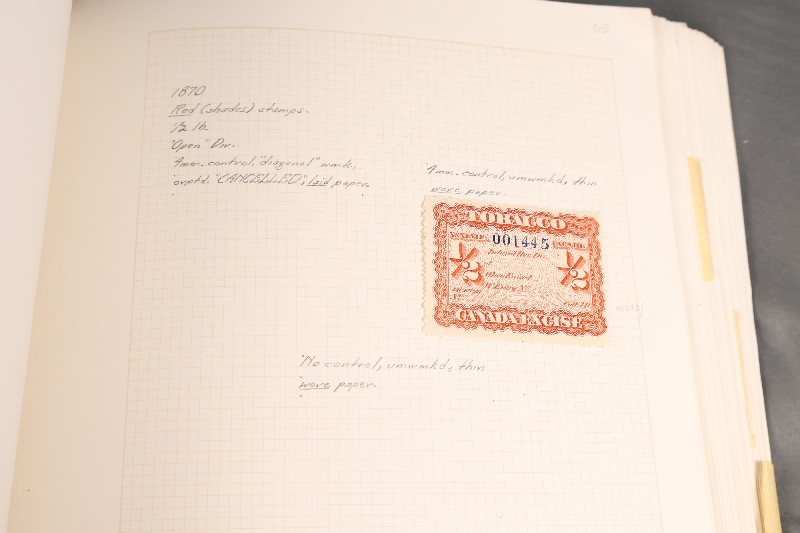 1870
Red (shades) stamps.
1/2 lb.
"Open" Div.
9mm. control, "diagonal" wmk,
ovptd. "CANCELLED", laid paper.
9mm. control, unwmkd, thin
wove paper.
TOBACCO
001445
1/2
1/2
CANADA EXCISE
No control, unwmkd, thin
wove paper.